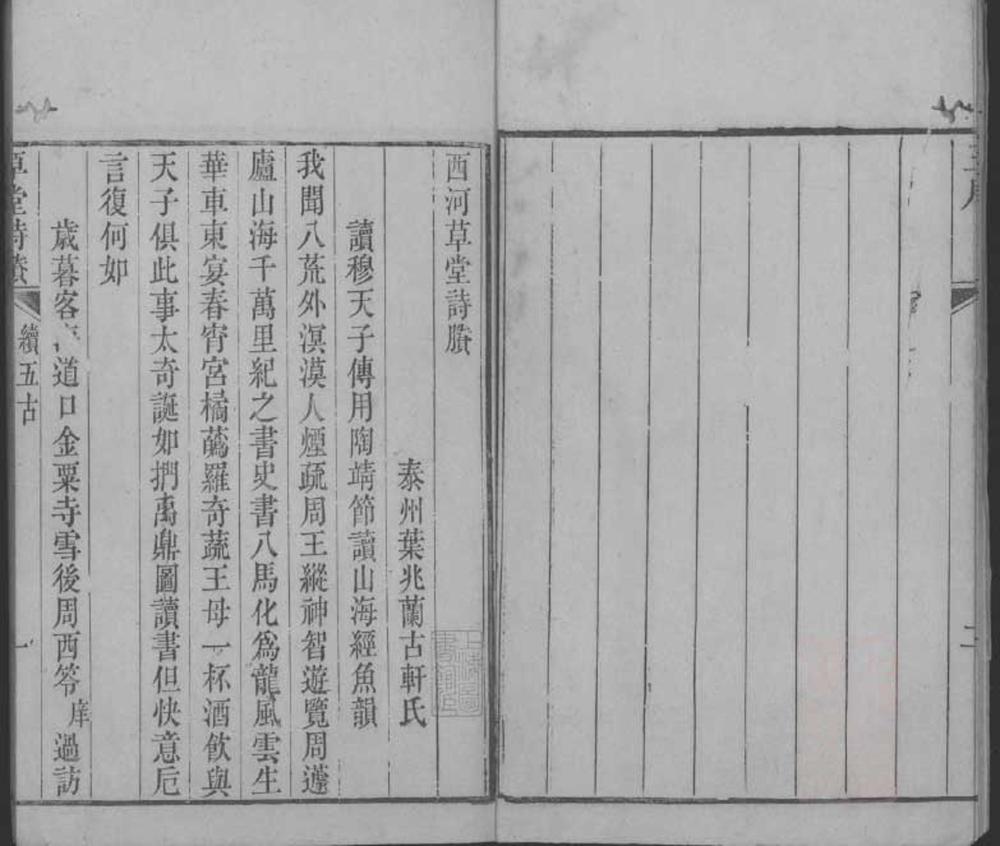 二
西河草堂詩賸
泰州葉兆蘭古軒氏
讀穆天子傳用陶靖節讀山海經魚韻
我聞八荒外溟漠人煙疏周王縱神智遊覽周蘧
廬山海千萬里紀之書史書八馬化爲龍風雲生
華車東宴春宵宮橘蔿羅奇蔬王母一杯酒飲與
天子俱此事太奇誕如捫禹鼎圖讀書但快意卮
言復何如
歲暮客道口金粟寺雪後周西笭庠過訪
草堂詩賸
續五古
一